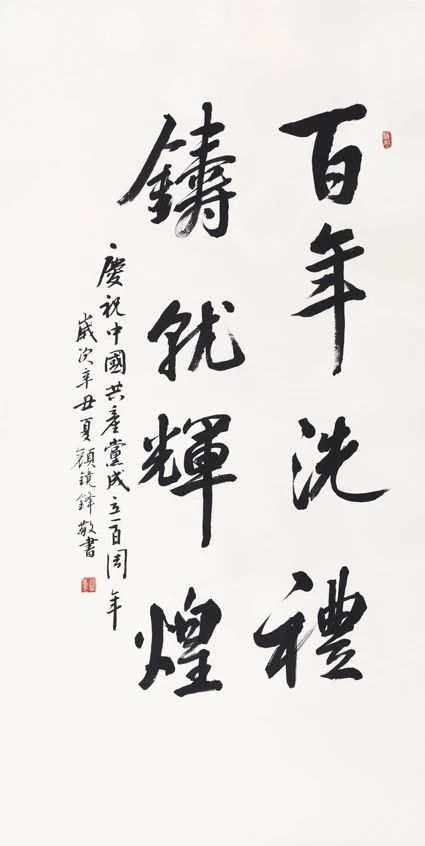 百年洗禮
鑄就輝煌
慶祝中國共產黨成立百周年
歲次辛丑夏顧鏡鋒敬書